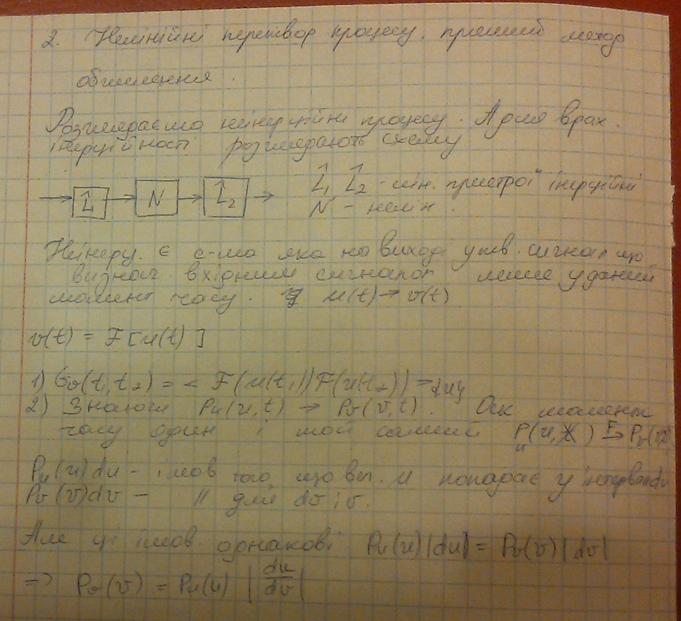 2. Нелінійні перетвор процесу, прямий метод
обчислення.
Розглядаємо неінерційні процесу. А для врах.
інерційності розглядають схему
L̂₁ N L̂₂
L̂₁ L̂₂ - лін. пристрої інерційні
N - нелін.
Неінерц. є с-ма яка на виході утв. сигнал що
визнач. вхідним сигналом лише у даний
момент часу. u(t) → v(t)
v(t) = F[u(t)]
1) G_v(t₁,t₂) = < F(u(t₁))F(u(t₂)) >
2) Знаючи P_u(u,t) → P_v(v,t). Оск моменти
часу один і той самий P_u(u,t) →^F P_v(v,
P_u(u)du - імов того що вел. u попадає у інтервал du
P_v(v)dv - // для dv і v.
Але ці імов. однакові P_u(u)|du| = P_v(v)|dv|
=> P_v(v) = P_u(u) |du/dv|